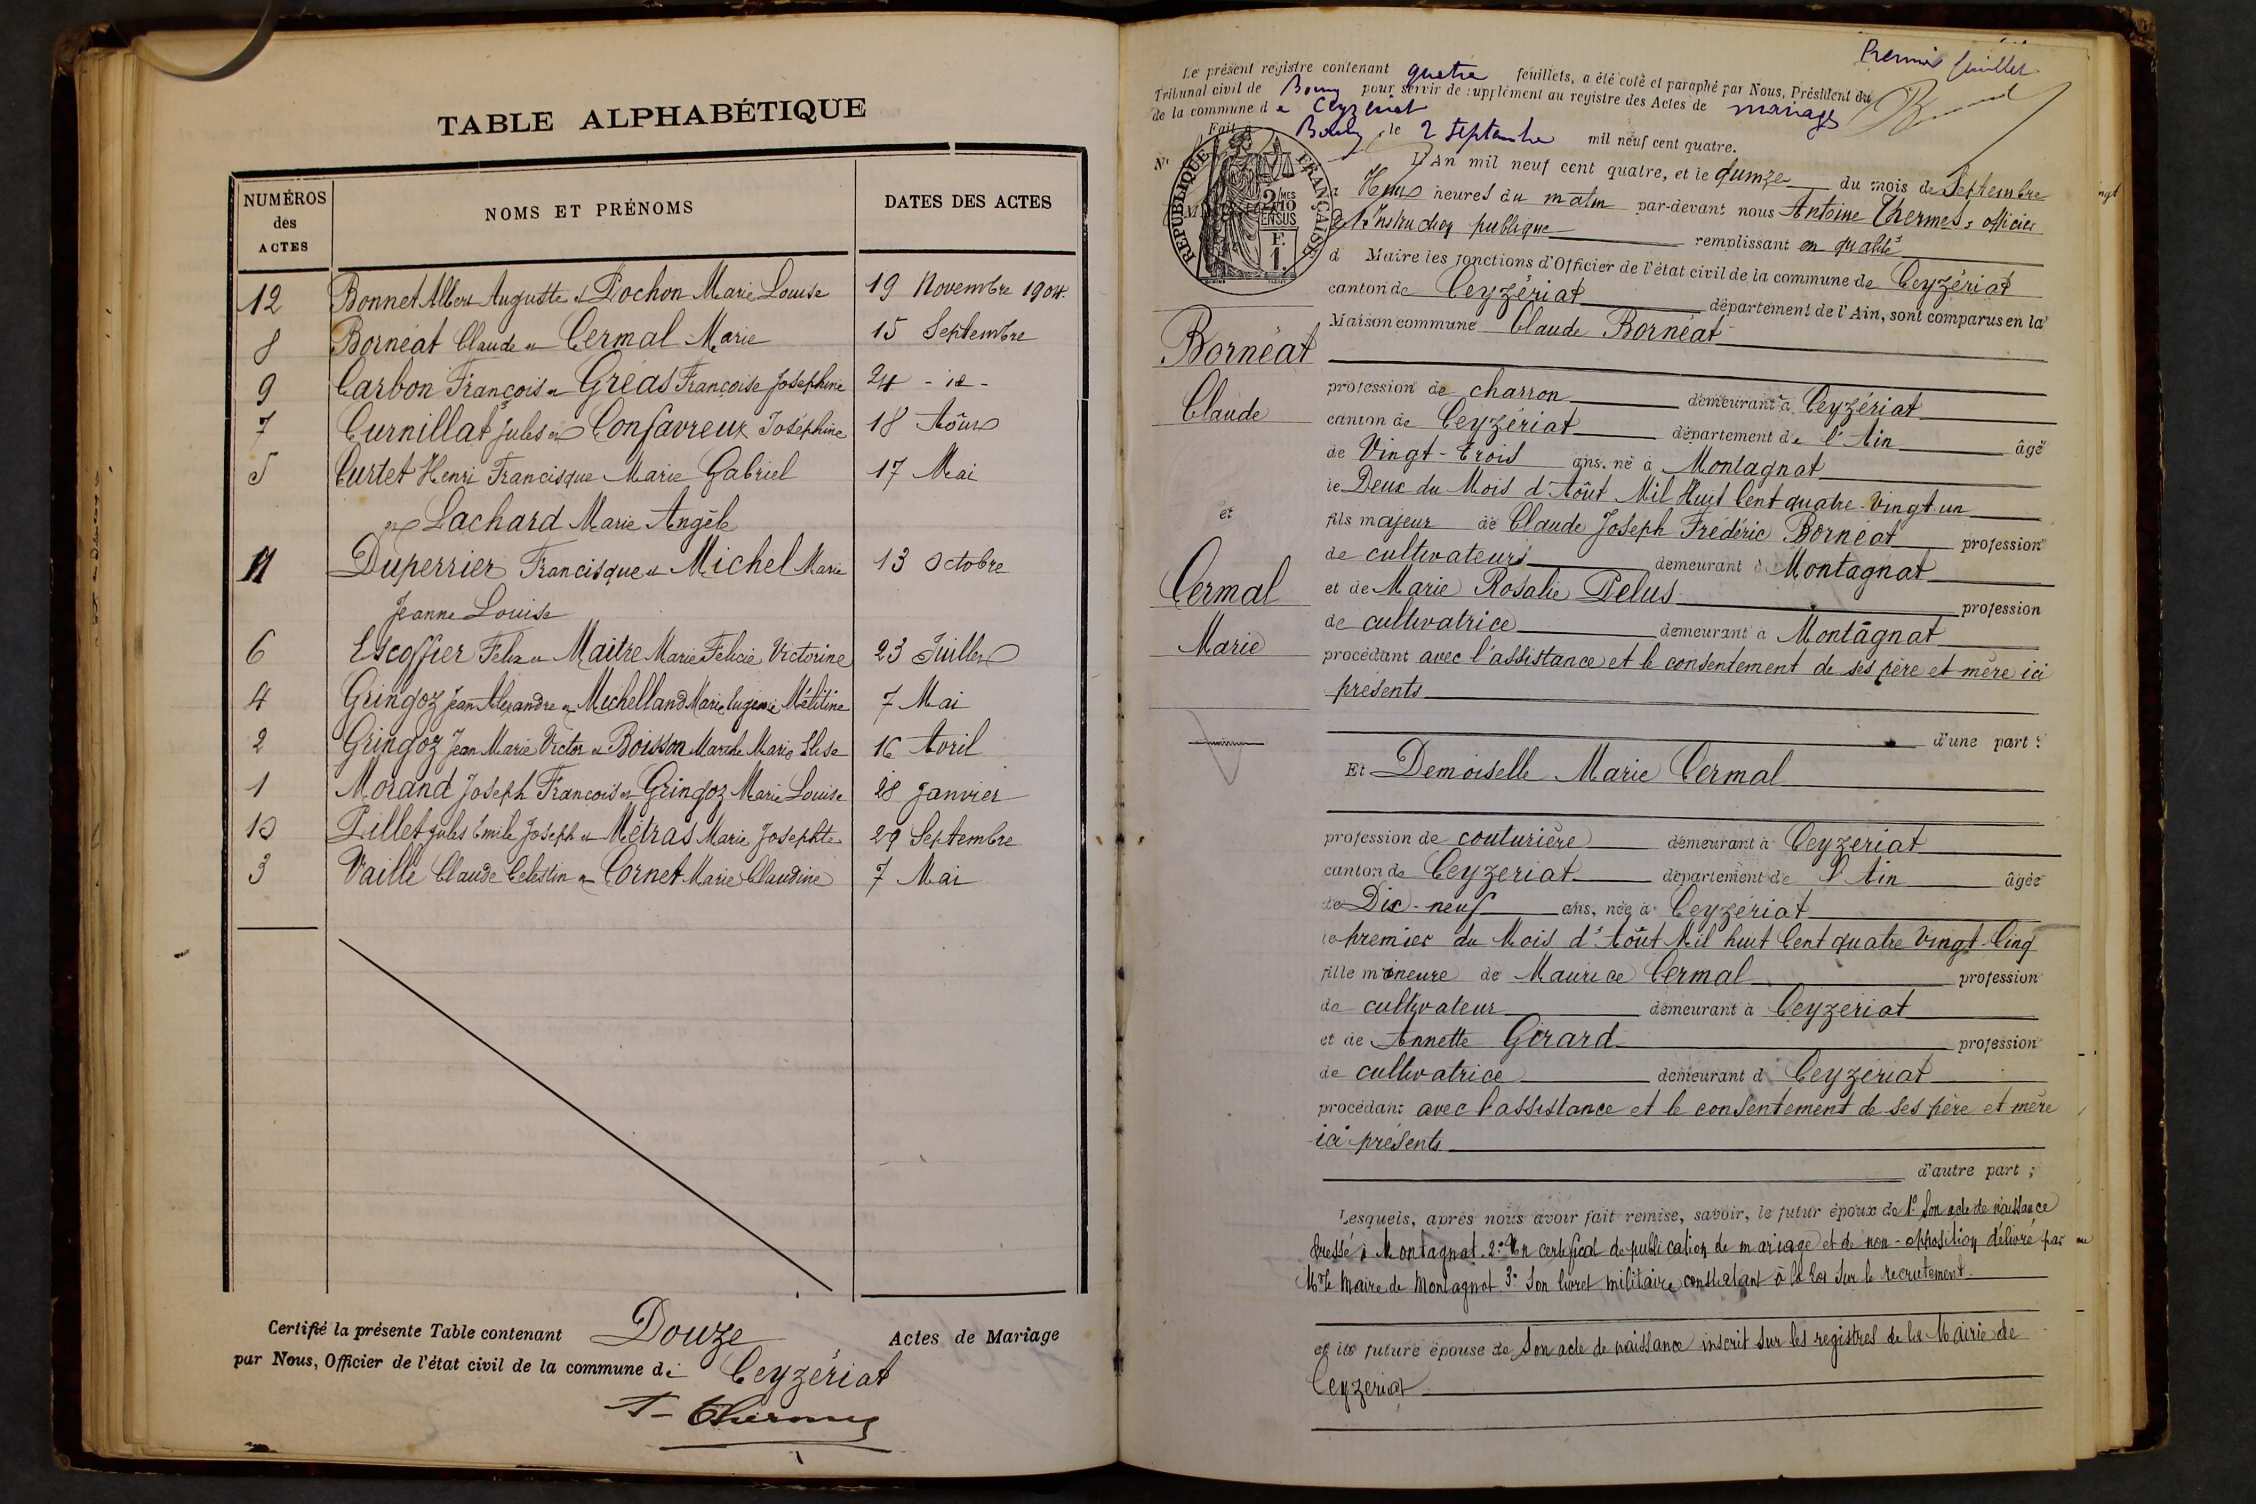 TABLE ALPHABÉTIQUE
NUMÉROS des ACTES
NOMS ET PRÉNOMS
DATES DES ACTES
12 Bonnet Albert Auguste et Pochon Marie Louise 19 Novembre 1904.
8 Bornéat Claude et Cermal Marie 15 Septembre
9 Carbon François et Gréas Françoise Joséphine 24 - id -
7 Curnillat Jules et Confavreux Joséphine 18 Août
5 Curtet Henri Francisque Marie Gabriel 17 Mai
et Lachard Marie Angèle
11 Duperrier Francisque et Michel Marie 13 Octobre
Jeanne Louise
6 Escoffier Felix et Maitre Marie Félicie Victorine 23 Juillet
4 Gringoz Jean Alexandre et Michelland Marie Eugénie Mélitine 7 Mai
2 Gringoz Jean Marie Victor et Boisson Marthe Marie Elise 16 Avril
1 Morand Joseph François et Gringoz Marie Louise 28 Janvier
10 Pillet Jules Emile Joseph et Métras Marie Josephte 29 Septembre
3 Vaille Claude Celestin et Cornet Marie Claudine 7 Mai
Certifié la présente Table contenant Douze Actes de Mariage
par Nous, Officier de l'état civil de la commune de Ceyzériat
Premier feuillet
Le présent registre contenant quatre feuillets, a été coté et paraphé par Nous, Président du
Tribunal civil de Bourg pour servir de supplément au registre des Actes de mariages
de la commune de Ceyzériat
Fait à Bourg, le 2 septembre mil neuf cent quatre.
RÉPUBLIQUE FRANÇAISE
2 MES 10 EN SUS
F. 1.
N°
L'An mil neuf cent quatre, et le quinze du mois de Septembre
à heures du matin par-devant nous Antoine Thermes, officier
de l'Instruction publique remplissant en qualité
d Maire les fonctions d'Officier de l'état civil de la commune de Ceyzériat
canton de Ceyzériat département de l'Ain, sont comparus en la
Maison commune Claude Bornéat
Bornéat
Claude
et
Cermal
Marie
profession de charron demeurant à Ceyzériat
canton de Ceyzériat département de l'Ain âgé
de Vingt-trois ans, né à Montagnat
le Deux du Mois d'Août Mil Huit Cent quatre-vingt-un
fils majeur de Claude Joseph Frédéric Bornéat profession
de cultivateurs demeurant à Montagnat
et de Marie Rosalie Pelus profession
de cultivatrice demeurant à Montagnat
procédant avec l'assistance et le consentement de ses père et mère ici
présents
d'une part ;
Et Demoiselle Marie Cermal
profession de couturière demeurant à Ceyzériat
canton de Ceyzeriat département de l'Ain âgée
de Dix-neuf ans, née à Ceyzériat
le premier du Mois d'Août Mil huit Cent quatre Vingt-Cinq
fille mineure de Maurice Cermal profession
de cultivateur demeurant à Ceyzériat
et de Annette Girard profession
de cultivatrice demeurant à Ceyzériat
procédant avec l'assistance et le consentement de ses père et mère
ici présents
d'autre part ;
Lesquels, après nous avoir fait remise, savoir, le futur époux de 1° Son acte de naissance
dressé à Montagnat. 2° Un certificat de publication de mariage et de non-opposition délivré par
Mr le Maire de Montagnat 3° Son livret militaire constatant à la loi sur le recrutement.
et la future épouse de Son acte de naissance inscrit sur les registres de la Mairie de
Ceyzeriat